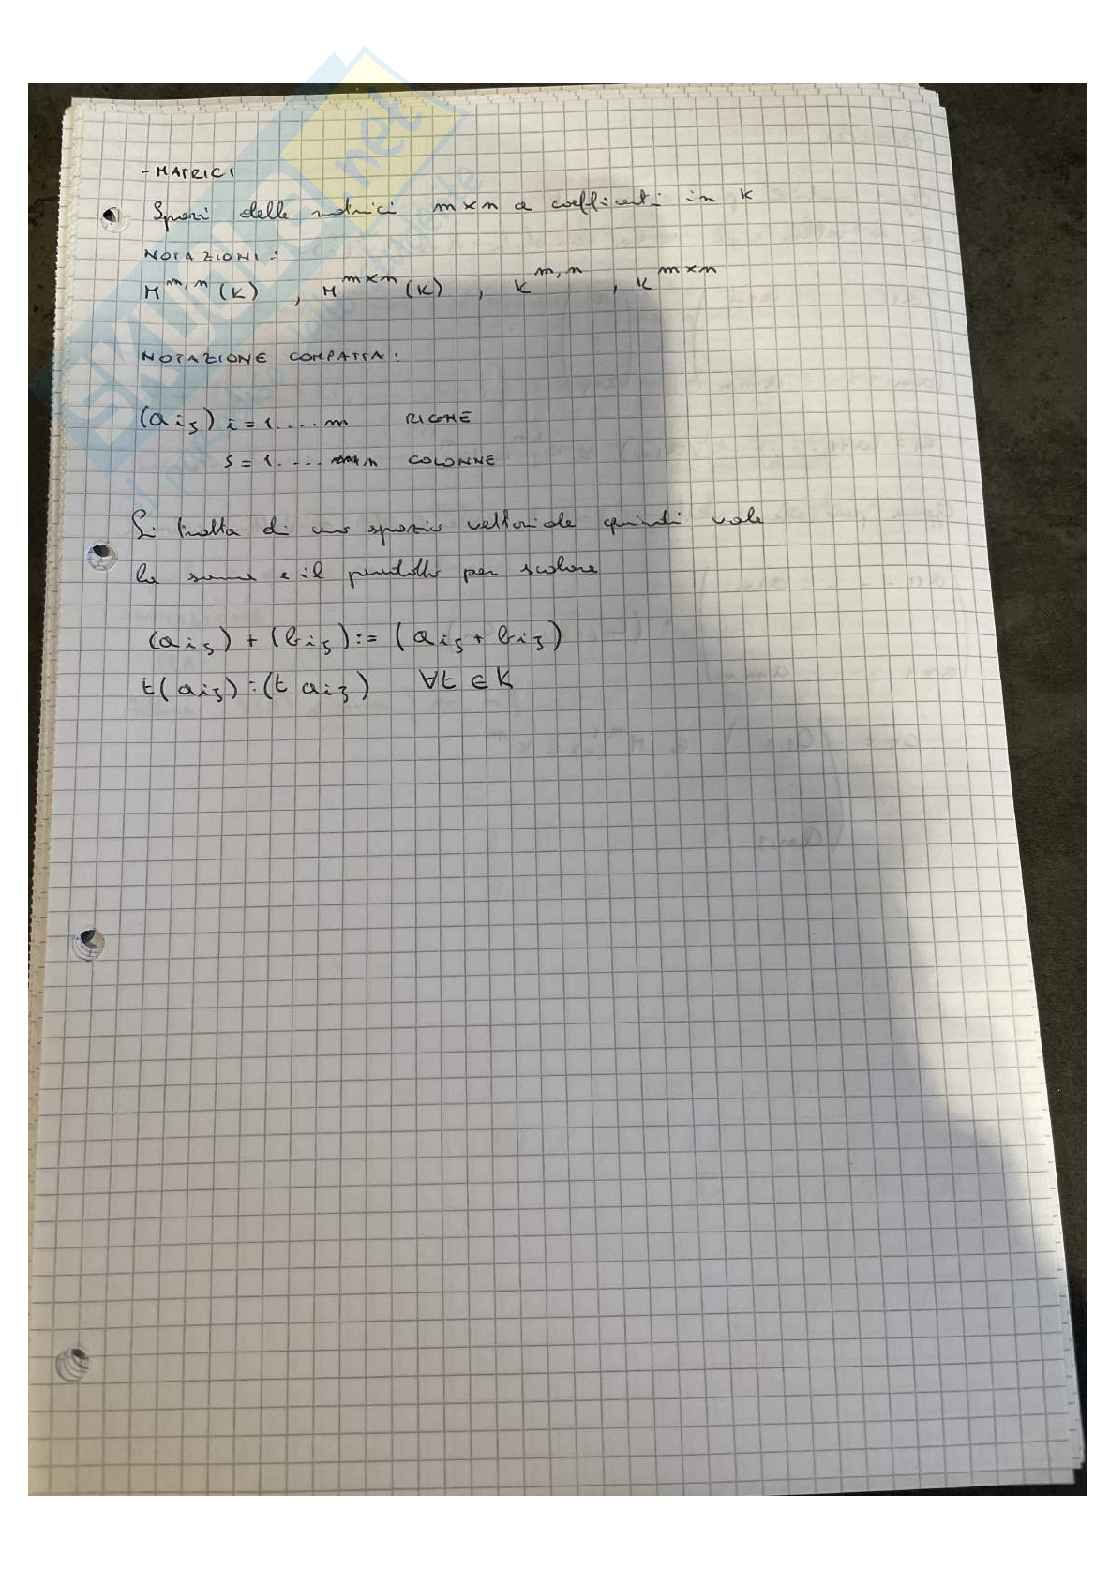 - MATRICI
Spazi delle matrici m×n a coefficienti in K
NOTAZIONI:
M^m,n (K) , M^m×n (K) , K^m,n , K^m×n
NOTAZIONE COMPATTA:
(aij) i = 1.... m RIGHE
j = 1.... n COLONNE
Si tratta di uno spazio vettoriale quindi vale
la somma e il prodotto per scalare
(aij) + (bij) := (aij + bij)
t(aij) := (t aij) ∀t ∈ K
SKUOLA.net